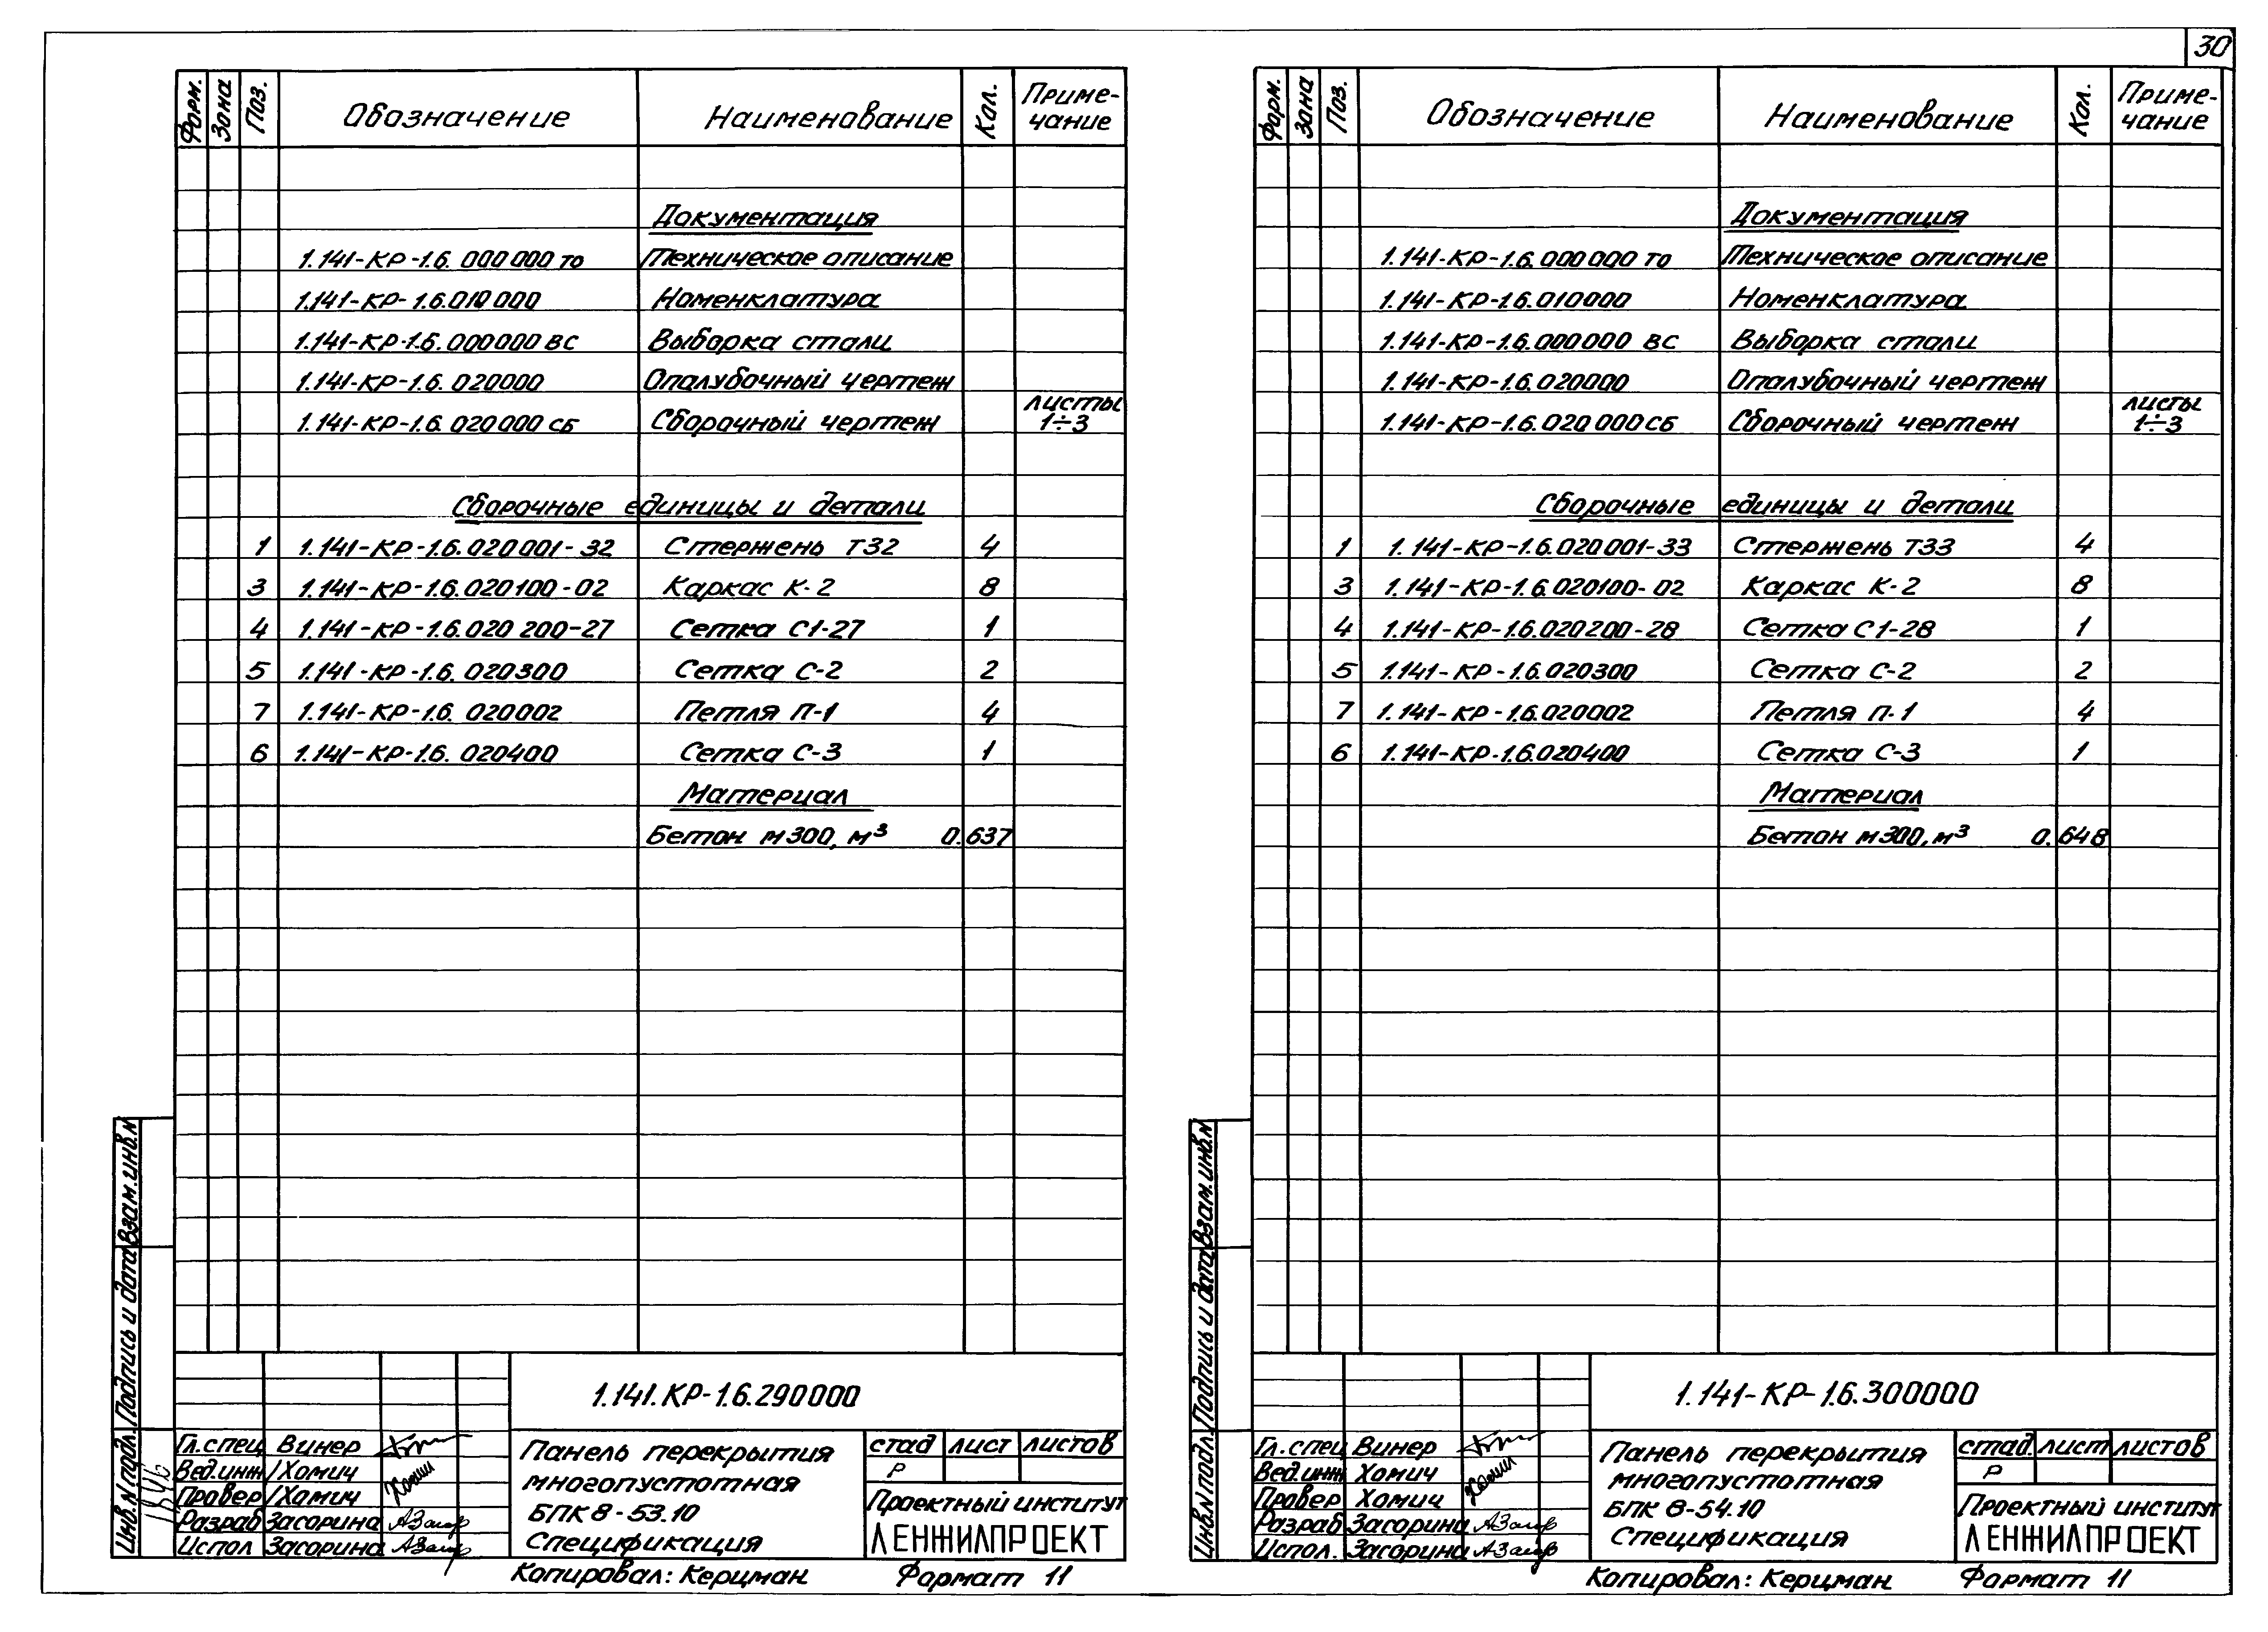 30
Форм. Зона Поз. Обозначение Наименование Кол. Приме-
чание
Документация
1.141-КР-1.6.000000 ТО Техническое описание
1.141-КР-1.6.010000 Номенклатура
1.141-КР-1.6.000000 ВС Выборка стали
1.141-КР-1.6.020000 Опалубочный чертеж
1.141-КР-1.6.020000 СБ Сборочный чертеж листы
1÷3
Сборочные единицы и детали
1 1.141-КР-1.6.020001-32 Стержень Т32 4
3 1.141-КР-1.6.020100-02 Каркас К-2 8
4 1.141-КР-1.6.020200-27 Сетка С1-27 1
5 1.141-КР-1.6.020300 Сетка С-2 2
7 1.141-КР-1.6.020002 Петля П-1 4
6 1.141-КР-1.6.020400 Сетка С-3 1
Материал
Бетон М300, м³ 0.637
Взам.инв.N
Подпись и дата
Инв.N подл.
1.141.КР-1.6.290000
Гл.спец Винер
Вед.инж Хомич
Провер Хомич
Разраб Засорина
Испол Засорина
Панель перекрытия
многопустотная
БПК 8-53.10
Спецификация
стад лист листов
Р
Проектный институт
ЛЕНЖИЛПРОЕКТ
Копировал: Керцман Формат 11
Форм. Зона Поз. Обозначение Наименование Кол. Приме-
чание
Документация
1.141-КР-1.6.000000 ТО Техническое описание
1.141-КР-1.6.010000 Номенклатура
1.141-КР-1.6.000000 ВС Выборка стали
1.141-КР-1.6.020000 Опалубочный чертеж
1.141-КР-1.6.020000 СБ Сборочный чертеж листы
1÷3
Сборочные единицы и детали
1 1.141-КР-1.6.020001-33 Стержень Т33 4
3 1.141-КР-1.6.020100-02 Каркас К-2 8
4 1.141-КР-1.6.020200-28 Сетка С1-28 1
5 1.141-КР-1.6.020300 Сетка С-2 2
7 1.141-КР-1.6.020002 Петля П-1 4
6 1.141-КР-1.6.020400 Сетка С-3 1
Материал
Бетон М300, м³ 0.648
Взам.инв.N
Подпись и дата
Инв.N подл.
1.141-КР-1.6.300000
Гл.спец Винер
Вед.инж Хомич
Провер Хомич
Разраб Засорина
Испол. Засорина
Панель перекрытия
многопустотная
БПК 8-54.10
Спецификация
стад. лист листов
Р
Проектный институт
ЛЕНЖИЛПРОЕКТ
Копировал: Керцман Формат 11